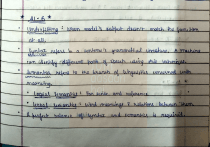 * AI-6
• Underfitting : When model's output doesn't match the function at all.
• Syntax refers to a sentence's grammatical structure. A machine can identify different parts of speech using rule
• Semantics refers to the branch of linguistics concerned with meaning.
* Logical Semantics : For ratio and reference
* Lexical semantics : Word meanings & relations between them
A perfect balance of syntax and semantics is required.